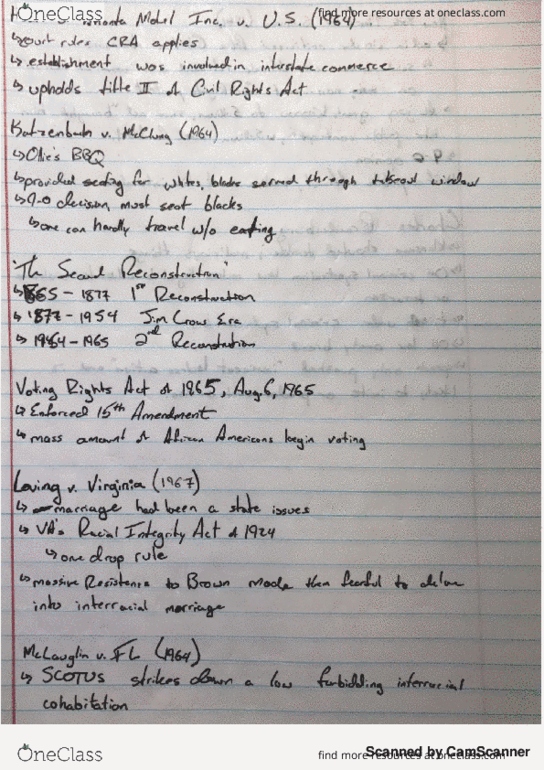 OneClass
find more resources at oneclass.com
Motel Inc. v. U.S. (1964)
↳ court rules CRA applies
↳ establishment was involved in interstate commerce
↳ upholds title II of Civil Rights Act
Katzenbach v. McClung (1964)
↳ Ollie's BBQ
↳ provided seating for whites, blacks served through takeout window
↳ 9-0 decision, must seat blacks
↳ one can hardly travel w/o eating
"The Second Reconstruction"
↳ 1865 - 1877 1st Reconstruction
↳ 1877 - 1954 Jim Crow Era
↳ 1964 - 1965 2nd Reconstruction
Voting Rights Act of 1965, Aug. 6, 1965
↳ Enforced 15th Amendment
↳ mass amount of African Americans begin voting
Loving v. Virginia (1967)
↳ marriage had been a state issues
↳ VA's Racial Integrity Act of 1924
↳ one drop rule
↳ massive Resistence to Brown made them fearful to delve
into interracial marriage
McLaughlin v. FL (1964)
↳ SCOTUS strikes down a law forbidding interracial
cohabitation
OneClass
find more resources at oneclass.com
Scanned by CamScanner